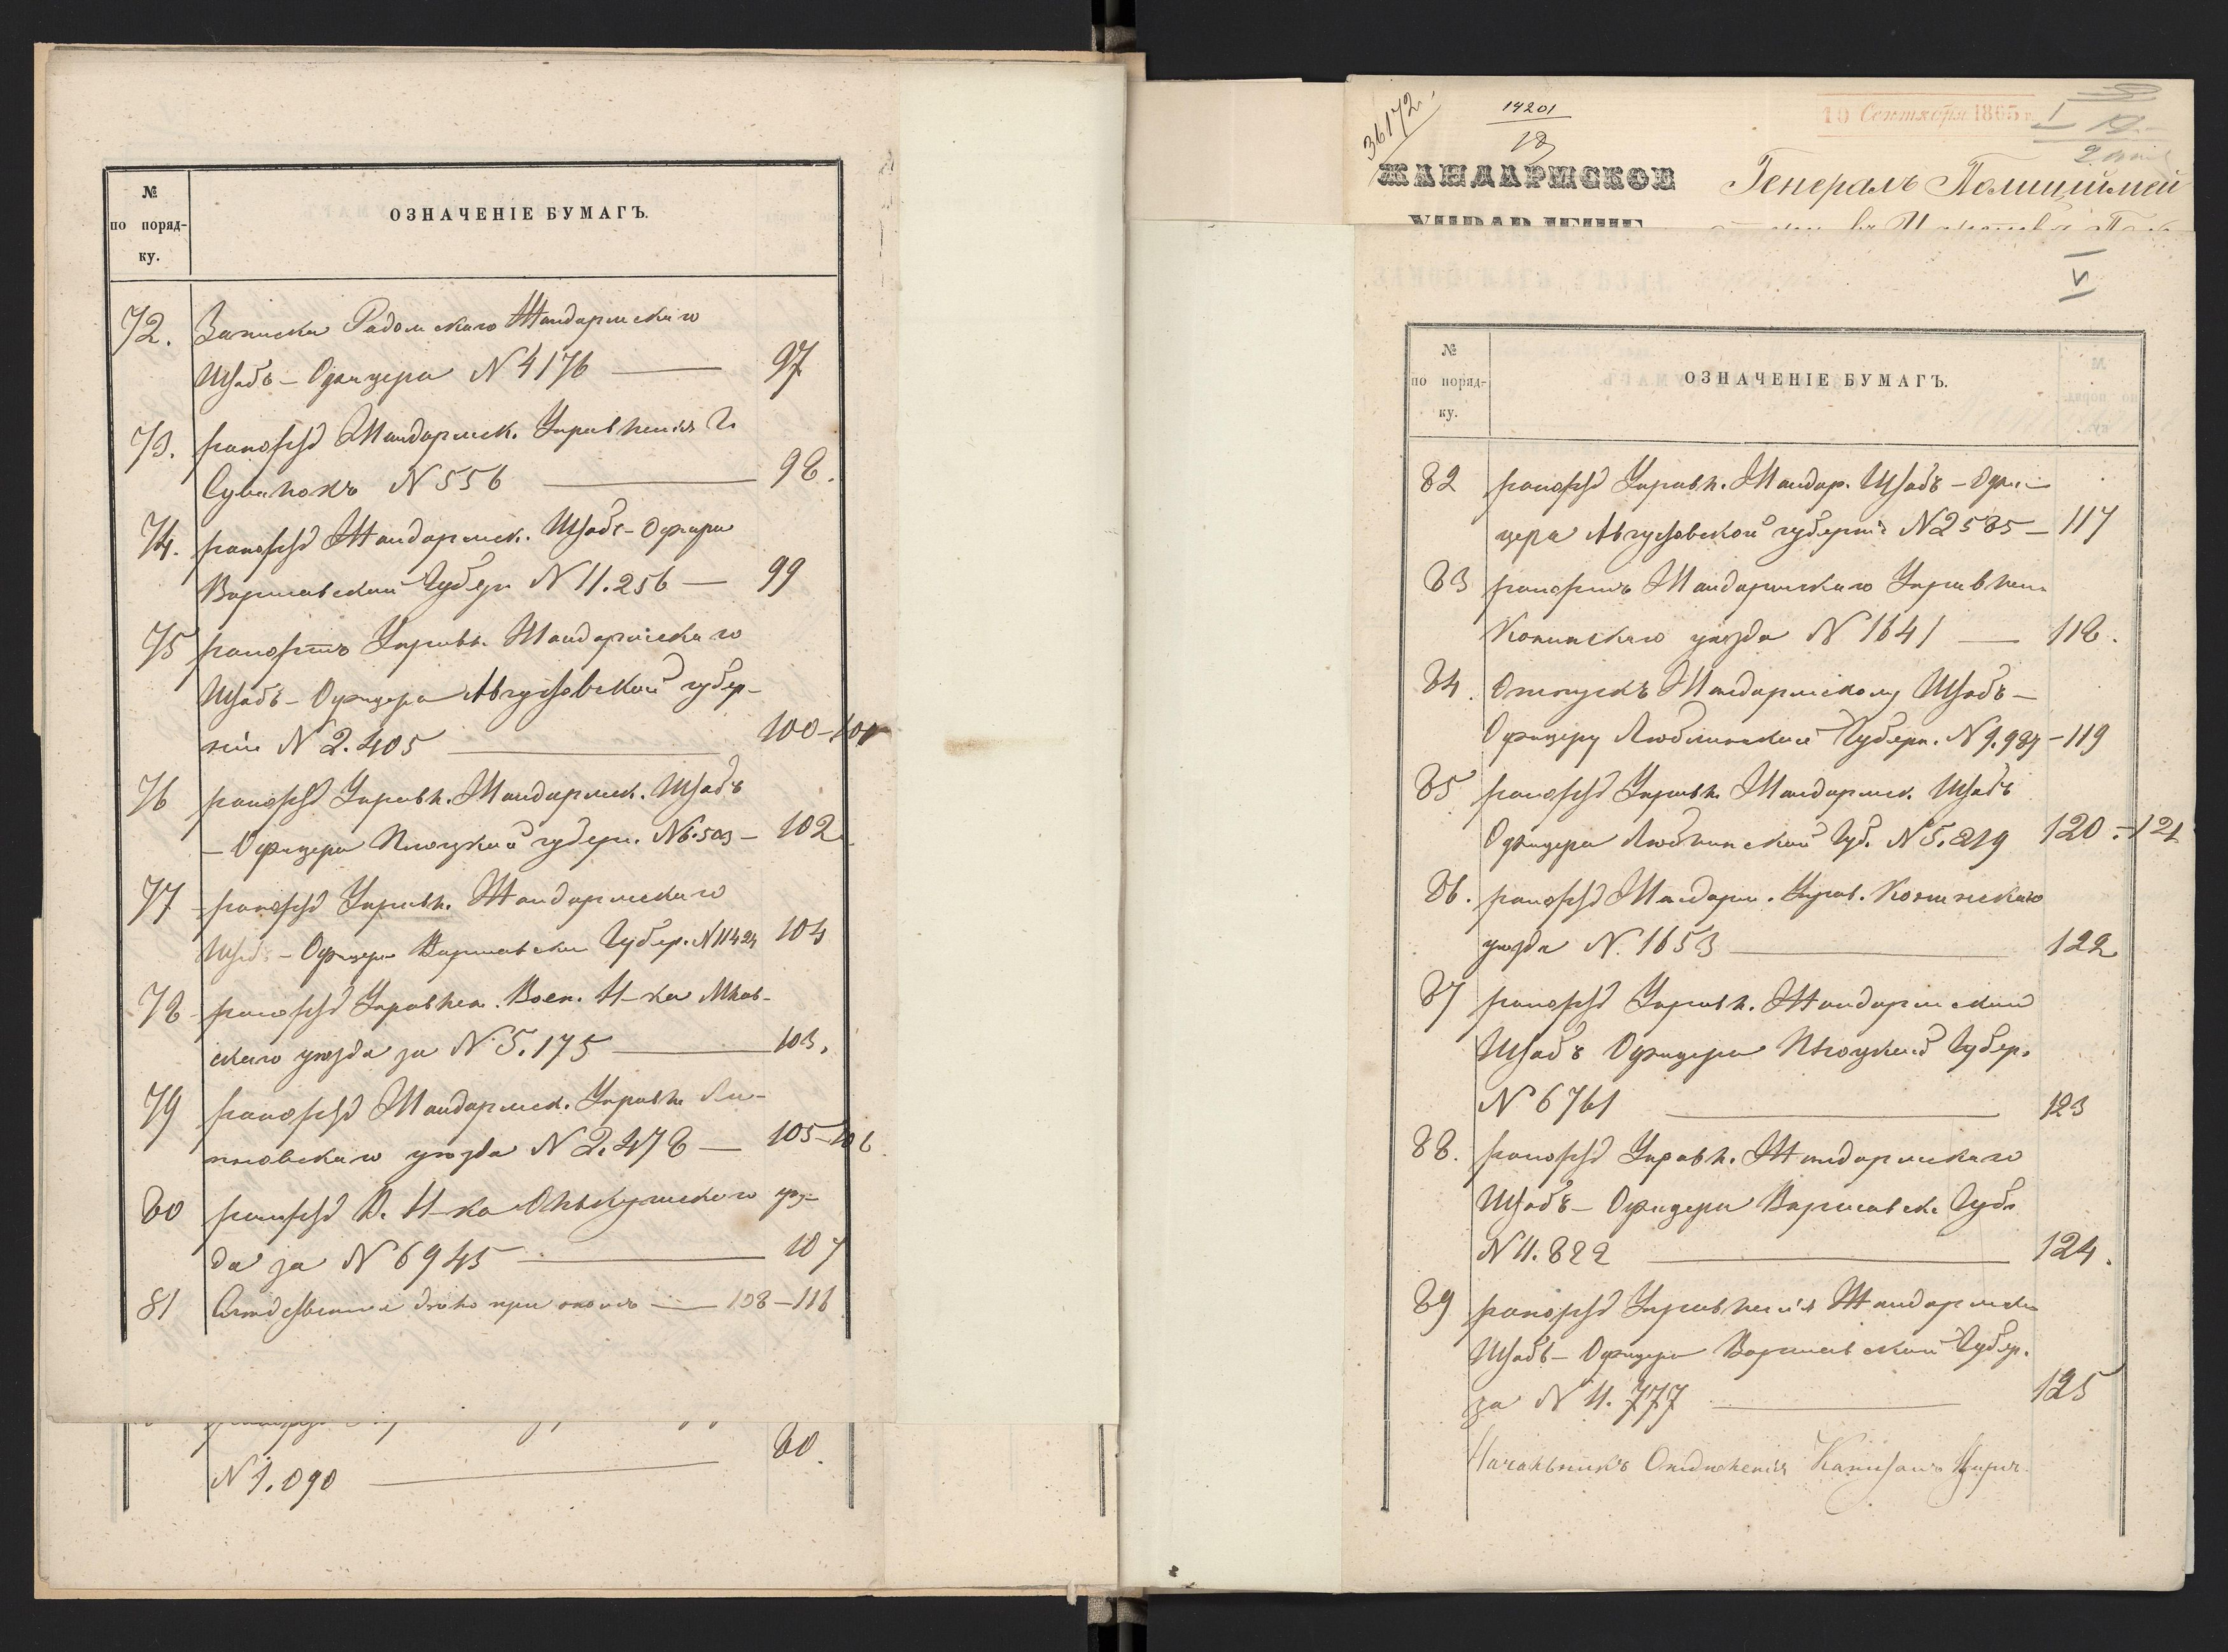 №
по поряд-
ку.
ОЗНАЧЕНІЕ БУМАГЪ.
72. Записка Радомскаго Жандармскаго
Штабъ-Офицера N 4176 — 97
73. рапортъ Жандармск. Управленія г.
Сувалокъ N 556 — 98.
74. рапортъ Жандармск. Штабъ-Офицера
Варшавской Губерн N 11.256 — 99
75 рапортъ Управл. Жандармскаго
Штабъ-Офицера Августовской губер-
ніи N 2.405 — 100-101
76 рапортъ Управл. Жандармск. Штабъ
-Офицера Плоцкой губерн. N 6.503 — 102
77 рапортъ Управл. Жандармскаго
Штабъ-Офицера Варшавской Губер. N 11424 104
78 рапортъ Управлен. Воен. Н-ка Млав-
скаго уѣзда за N 5.175 — 103.
79 рапортъ Жандармск. Управл. Ли-
пновскаго уѣзда N 2.478 — 105-106
80 рапортъ В. Н-ка Олькушскаго уѣз-
да за N 6945 — 107
81 Слѣдственное дѣло при описи — 108-116
N 1.090 — 80.
36172.
14201
10 Сентября 1865 г.
ЖАНДАРМСКОЕ
УПРАВЛЕНІЕ
Генералъ Полицімей
V
№
по поряд-
ку.
ОЗНАЧЕНІЕ БУМАГЪ.
82 рапортъ Управл. Жандар. Штабъ-Офи-
цера Августовской губерніи N 2585 — 117
83 рапортъ Жандармскаго Управлен
Конинскаго уѣзда N 1641 — 118.
84. Отпускъ Жандармскому Штабъ-
Офицеру Люблинской Губерн. N 9.987 — 119
85 рапортъ Управл. Жандармск. Штабъ
Офицера Люблинской Губ. N 5.819 120-121
86. рапортъ Жандарм. Управ. Конинскаго
уѣзда N. 1653 — 122
87 рапортъ Управл. Жандармской
Штабъ Офицера Плоцкой Губер.
N 6761 — 123
88. рапортъ Управл. Жандармскаго
Штабъ-Офицера Варшавск. Губ.
N 11.822 — 124.
89 рапортъ Управленія Жандармск
Штабъ-Офицера Варшавской Губер.
за N 11.777 — 125
Начальникъ Отдѣленія Капитанъ